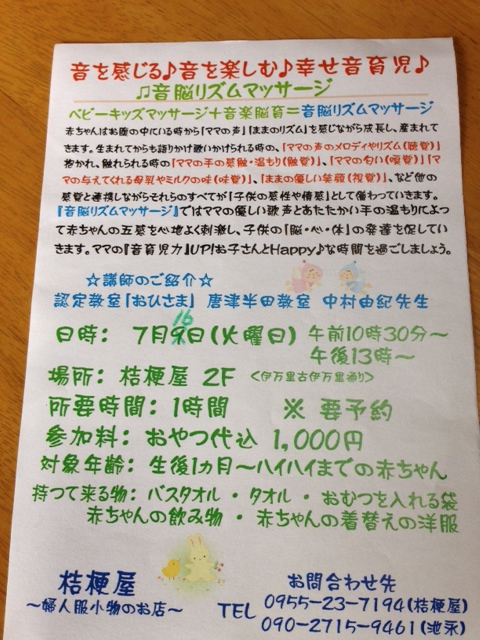 音を感じる♪音を楽しむ♪幸せ音育児♪
♫音脳リズムマッサージ
ベビーキッズマッサージ＋音楽脳育＝音脳リズムマッサージ
赤ちゃんはお腹の中にいる時から「ママの声」「ままのリズム」を感じながら成長し、産まれて
きます。生まれてからも語りかけ歌いかけられる時の、「ママの声のメロディやリズム(聴覚)」
抱かれ、触れられる時の「ママの手の感触・温もり(触覚)」、「ママの匂い(嗅覚)」「マ
マの与えてくれる母乳やミルクの味(味覚)」、「ままの優しい笑顔(視覚)」、など他の
感覚と連携しながらそれらのすべてが「子供の感性や情感」として備わっていきます。
『音脳リズムマッサージ』ではママの優しい歌声とあたたかい手の温もりによっ
て赤ちゃんの五感を心地よく刺激し、子供の「脳・心・体」の発達を促してい
きます。ママの『音育児力』UP!お子さんとHappy♪な時間を過ごしましょう。
☆講師のご紹介☆
認定教室「おひさま」 唐津半田教室 中村由紀先生
16
日時： 7月9日(火曜日) 午前10時30分～
午後13時～
場所： 桔梗屋 2F <伊万里古伊万里通り>
所要時間： 1時間 ※ 要予約
参加料： おやつ代込 1,000円
対象年齢： 生後1カ月～ハイハイまでの赤ちゃん
持つて来る物： バスタオル ・ タオル ・ おむつを入れる袋
赤ちゃんの飲み物 ・ 赤ちゃんの着替えの洋服
桔梗屋
～婦人服小物のお店～
お問合わせ先
TEL 0955-23-7194(桔梗屋)
090-2715-9461(池永)